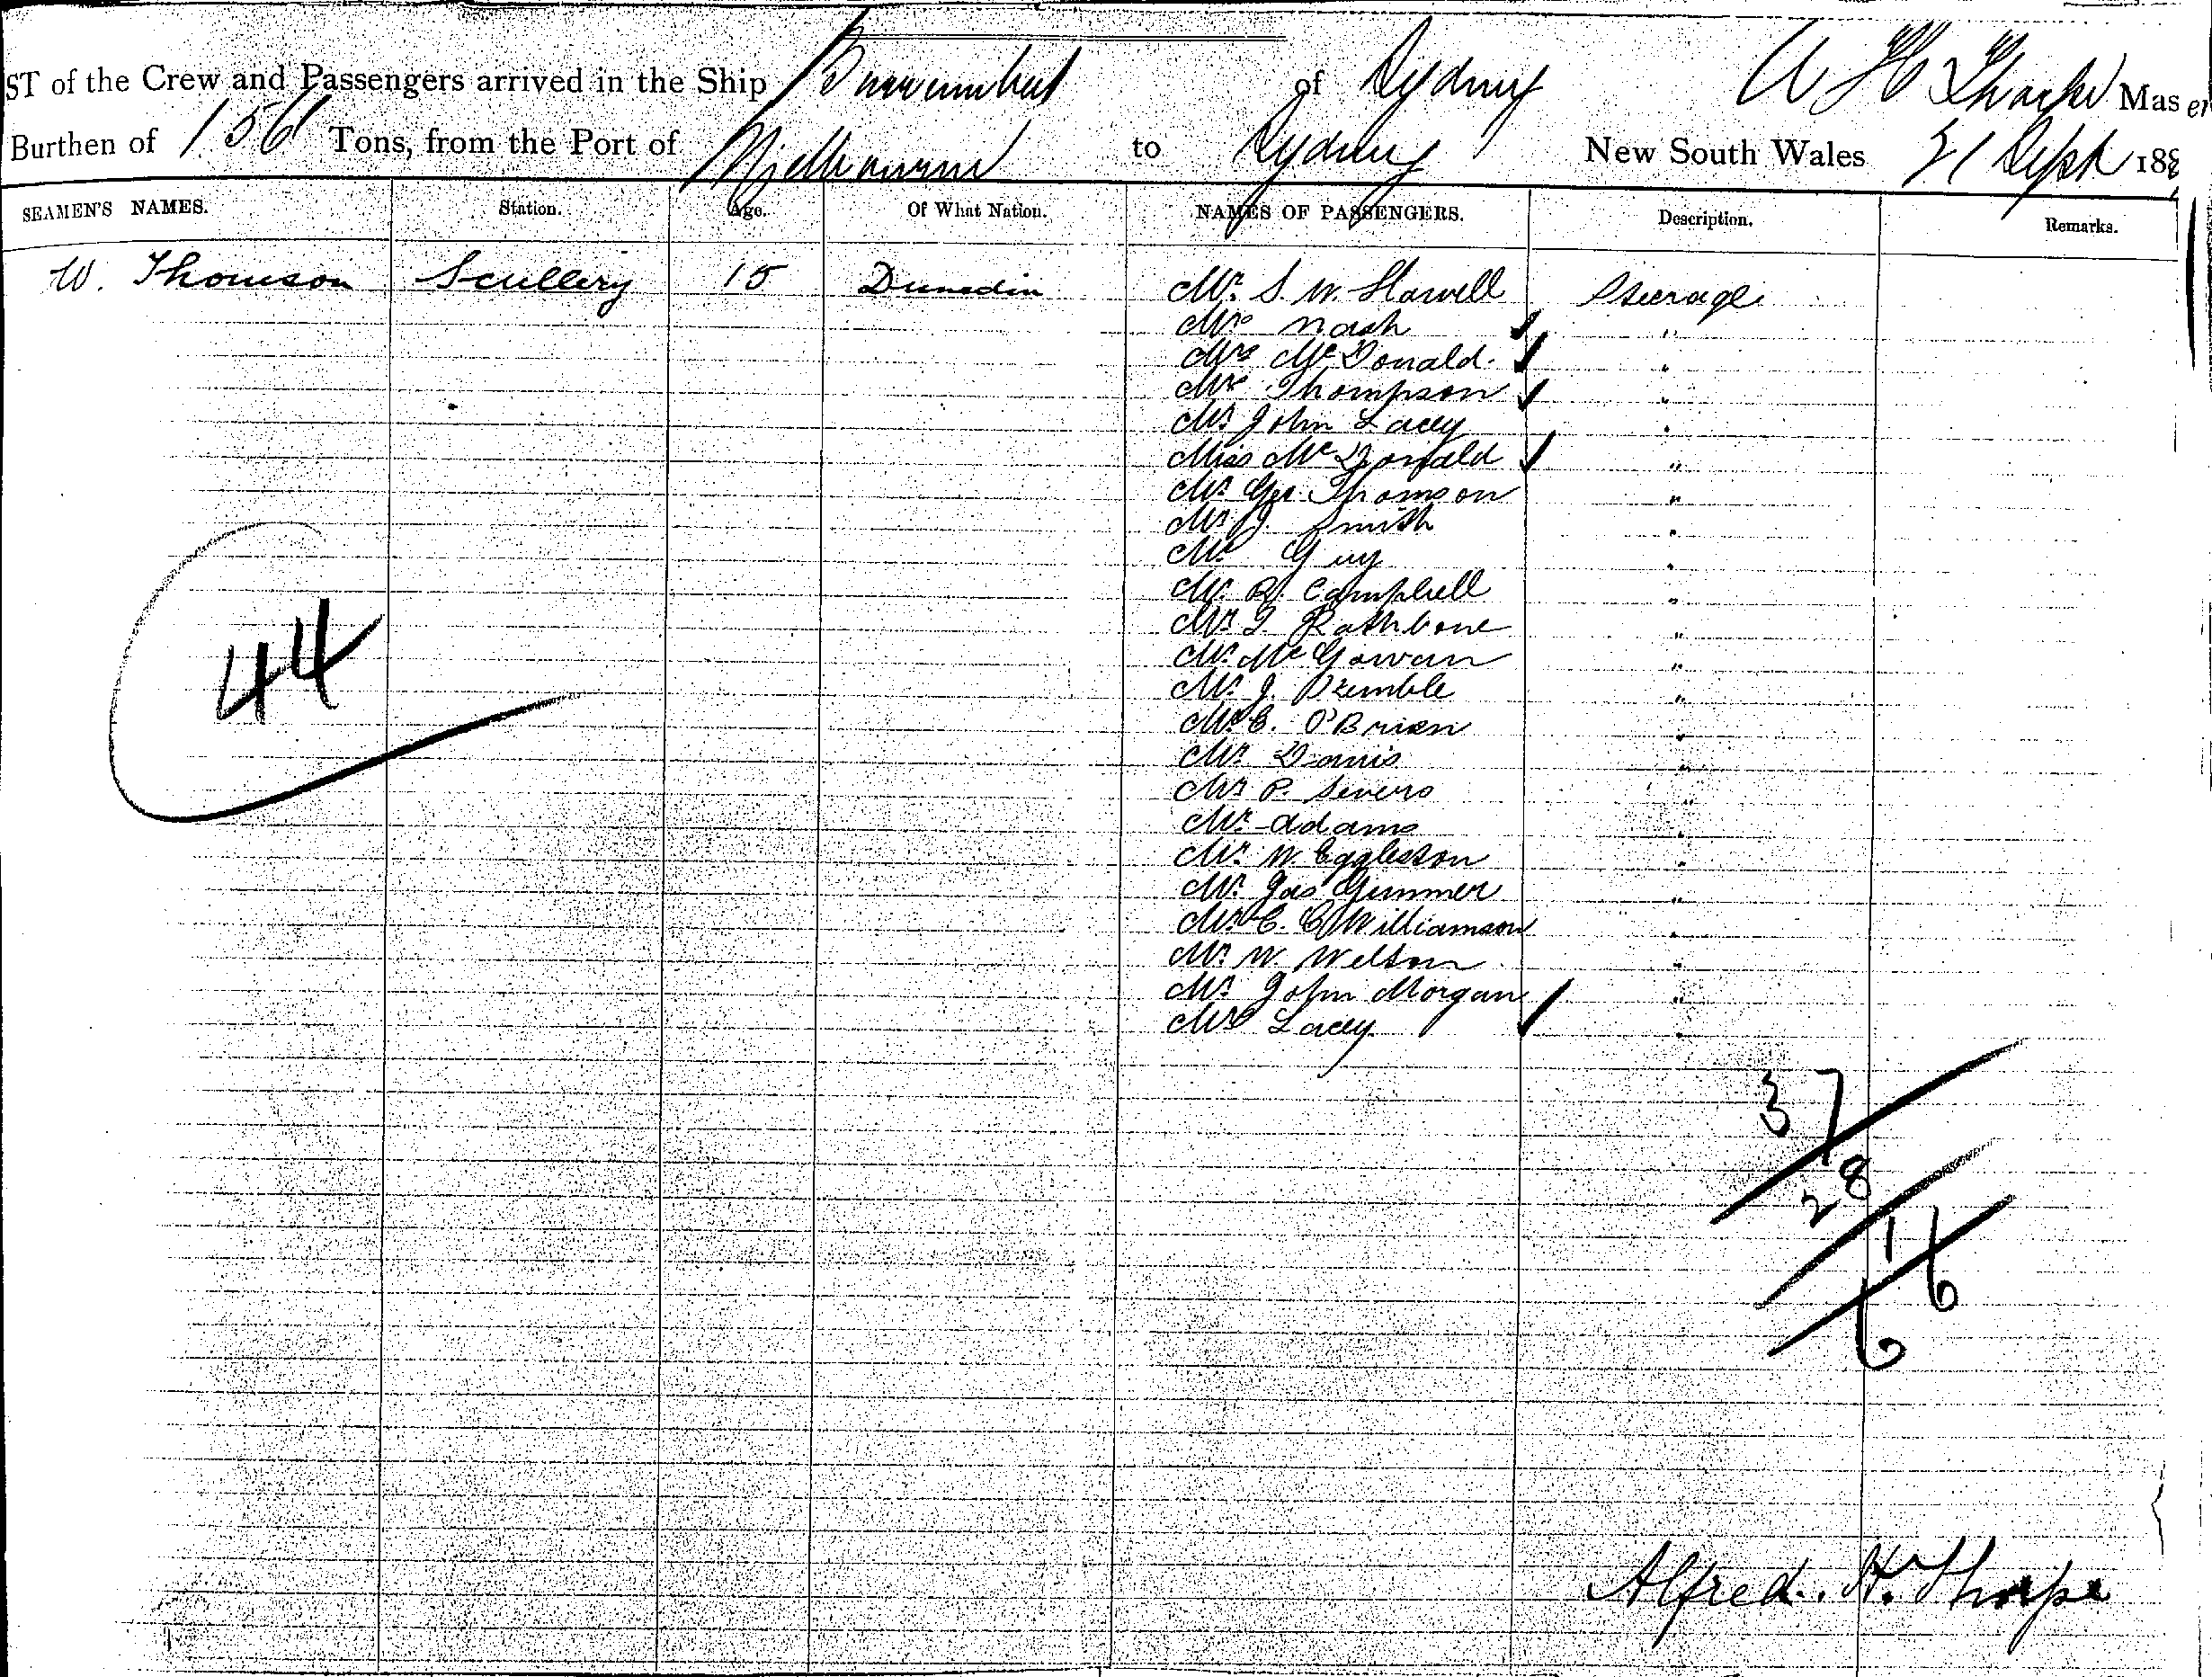 ST of the Crew and Passengers arrived in the Ship Burrumbeet of Sydney A H Thorpe Master
Burthen of 156 Tons, from the Port of Melbourne to Sydney New South Wales 21 Sept 188
SEAMEN'S NAMES. Station. Age. Of What Nation. NAMES OF PASSENGERS. Description. Remarks.
W. Thomson Scullery 15 Dunedin Mr. S. W. Steerage
Mrs Nash "
Mrs McDonald "
Mrs Thompson "
Mr John Lacey "
Miss McDonald "
Mr Geo. Thomson "
Mr J. Smith "
Mr Guy "
Mr R. Campbell "
Mr T. Rathbone "
Mr McGowan "
Mr J. "
Mr C. O'Brien "
Mr Davis "
Mr P. "
Mr Adams "
Mr W. Eggleston "
Mr Jas "
Mr C. C. Williamson "
Mr W. "
Mr John Morgan "
Mrs Lacey "
44
37
28
16
6
Alfred. H. Thorpe